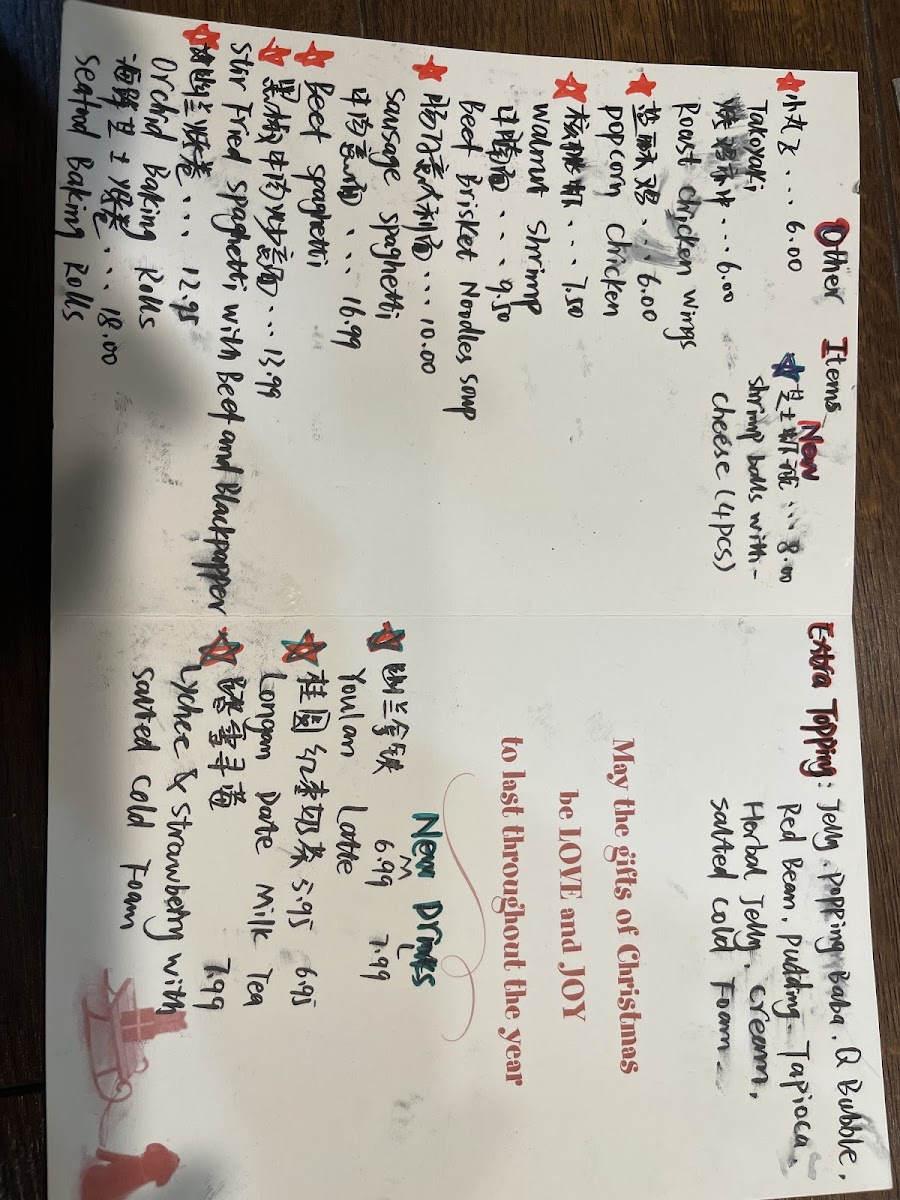 Other Items
小丸子 ... 6.00
Takoyaki
烤鸡翅 ... 6.00
Roast chicken wings
盐酥鸡 ... 6.00
popcorn chicken
核桃虾 ... 7.50
walnut shrimp
牛腩面 .... 9.50
Beef Brisket Noodles soup
肠仔意大利面 ... 10.00
sausage spaghetti
牛肉意面 ... 16.99
Beef spaghetti
黑椒牛肉炒意面 ... 13.99
Stir Fried spaghetti with Beef and Blackpapper
幽兰焗卷 .... 12.95
Orchid Baking Rolls
海鲜芝士焗卷 ... 18.00
Seafood Baking Rolls
New
芝士虾丸 ... 8.00
shrimp balls with-
cheese (4pcs)
Extra Topping: Jelly, Popping Baba, Q Bubble,
Red Bean, pudding, Tapioca,
Herbal Jelly, cream,
salted cold Foam
May the gifts of Christmas
be LOVE and JOY
to last throughout the year
New Drinks
M L
幽兰拿铁 6.99 7.99
Youlan Latte
桂圆红枣奶茶 5.95 6.95
Longan Date Milk Tea
7.99
Lychee & Strawberry with
salted cold Foam